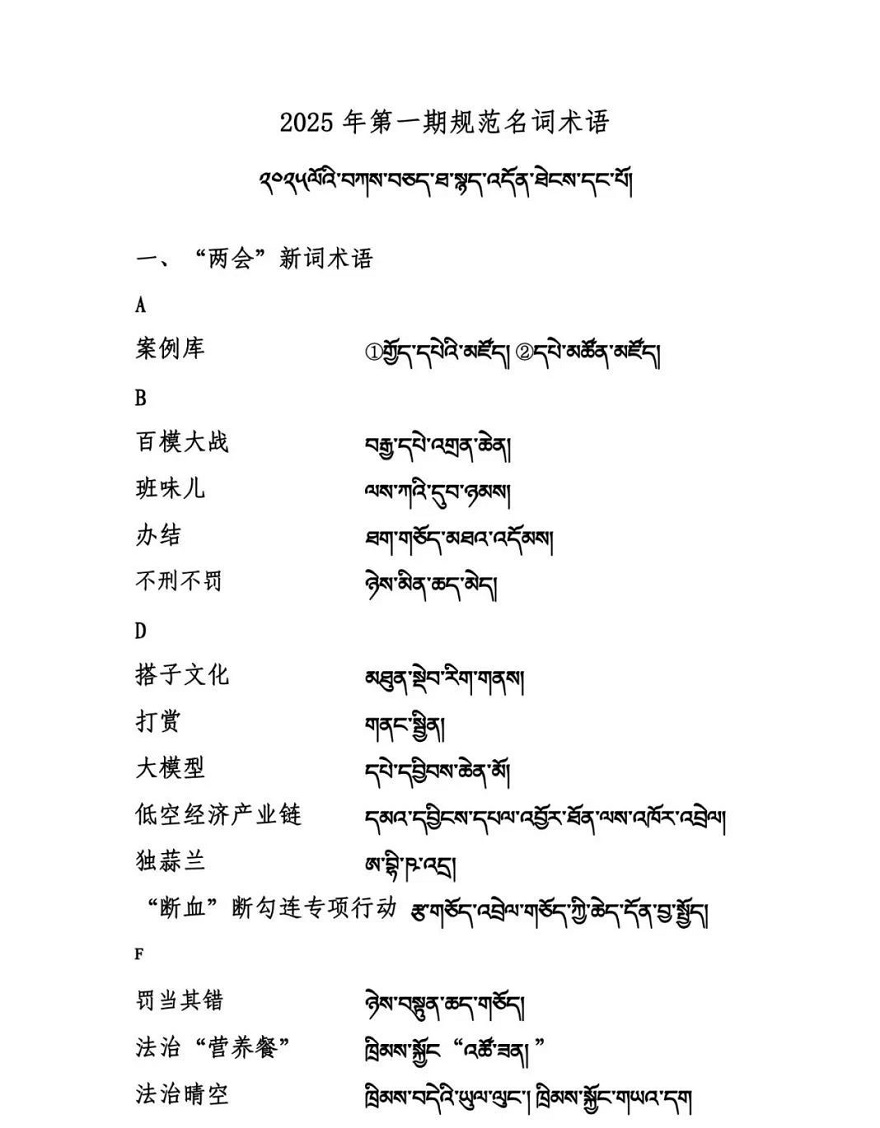 2025 年第一期规范名词术语
༢༠༢༥ལོའི་བཀས་བཅད་ཐ་སྙད་འདོན་ཐེངས་དང་པོ།
一、“两会”新词术语
A
案例库 ①གྱོད་དཔེའི་མཛོད། ②དཔེ་མཚོན་མཛོད།
B
百模大战 བརྒྱ་དཔེ་འགྲན་ཆེན།
班味儿 ལས་ཀའི་དུབ་ཉམས།
办结 ཐག་གཅོད་མཐའ་འདོམས།
不刑不罚 ཉེས་མིན་ཆད་མེད།
D
搭子文化 མཐུན་སྡེབ་རིག་གནས།
打赏 གནང་སྦྱིན།
大模型 དཔེ་དབྱིབས་ཆེན་མོ།
低空经济产业链 དམའ་དབྱིངས་དཔལ་འབྱོར་ཐོན་ལས་འཁོར་འབྲེལ།
独蒜兰 ཨ་བྷི་ཁ་འདྲ།
“断血”断勾连专项行动 རྩ་གཅོད་འབྲེལ་གཅོད་ཀྱི་ཆེད་དོན་བྱ་སྤྱོད།
F
罚当其错 ཉེས་བསྟུན་ཆད་གཅོད།
法治“营养餐” ཁྲིམས་སྐྱོང“འཚོ་ཟན།”
法治晴空 ཁྲིམས་བདེའི་ཡུལ་ལུང་། ཁྲིམས་སྐྱོང་གཡའ་དག